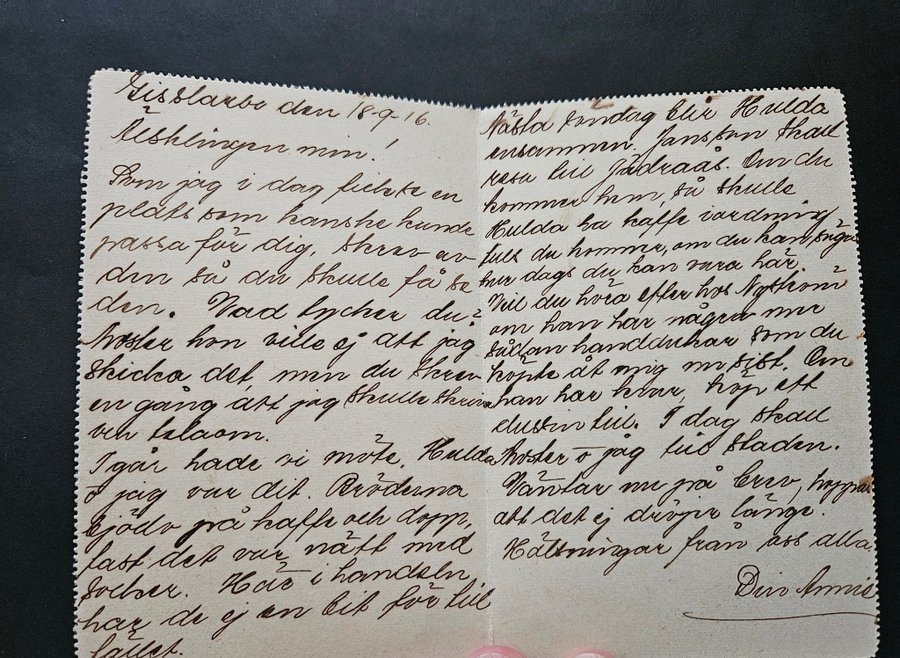 Gisslarbo den 18-9-16.
Älsklingen min!
Som jag i dag fickste en
plats som kanske kunde
passa för dig, skrev av
den så du skulle få se
den. Vad tycker du?
Moster hon ville ej att jag
skicka det, men du skrev
en gång att jag skulle skriva
om
I går hade vi möte, Hulda
o jag var dit. Bröderna
bjödo på kaffe och dopp,
fast det var nätt med
socker. Här i handeln
har de ej en bit för till
fället.
Nästa söndag blir Hulda
ensammen. Jansson skall
resa till Jädraås. Om du
kommer hem, så skulle
Hulda ha kaffe iordning
tills du kommer, om du kan säga
hur dags du kan vara här.
Vill du höra efter hos Nyström
om han har några mer
sådan handdukar som du
köpte åt mig nu sist. Om
han har kvar, köp ett
dussin till. I dag skall
Moster o jag till staden.
Väntar nu på brev, hoppas
att det ej dröjer länge.
Hälsningar från oss alla.
Din Annie